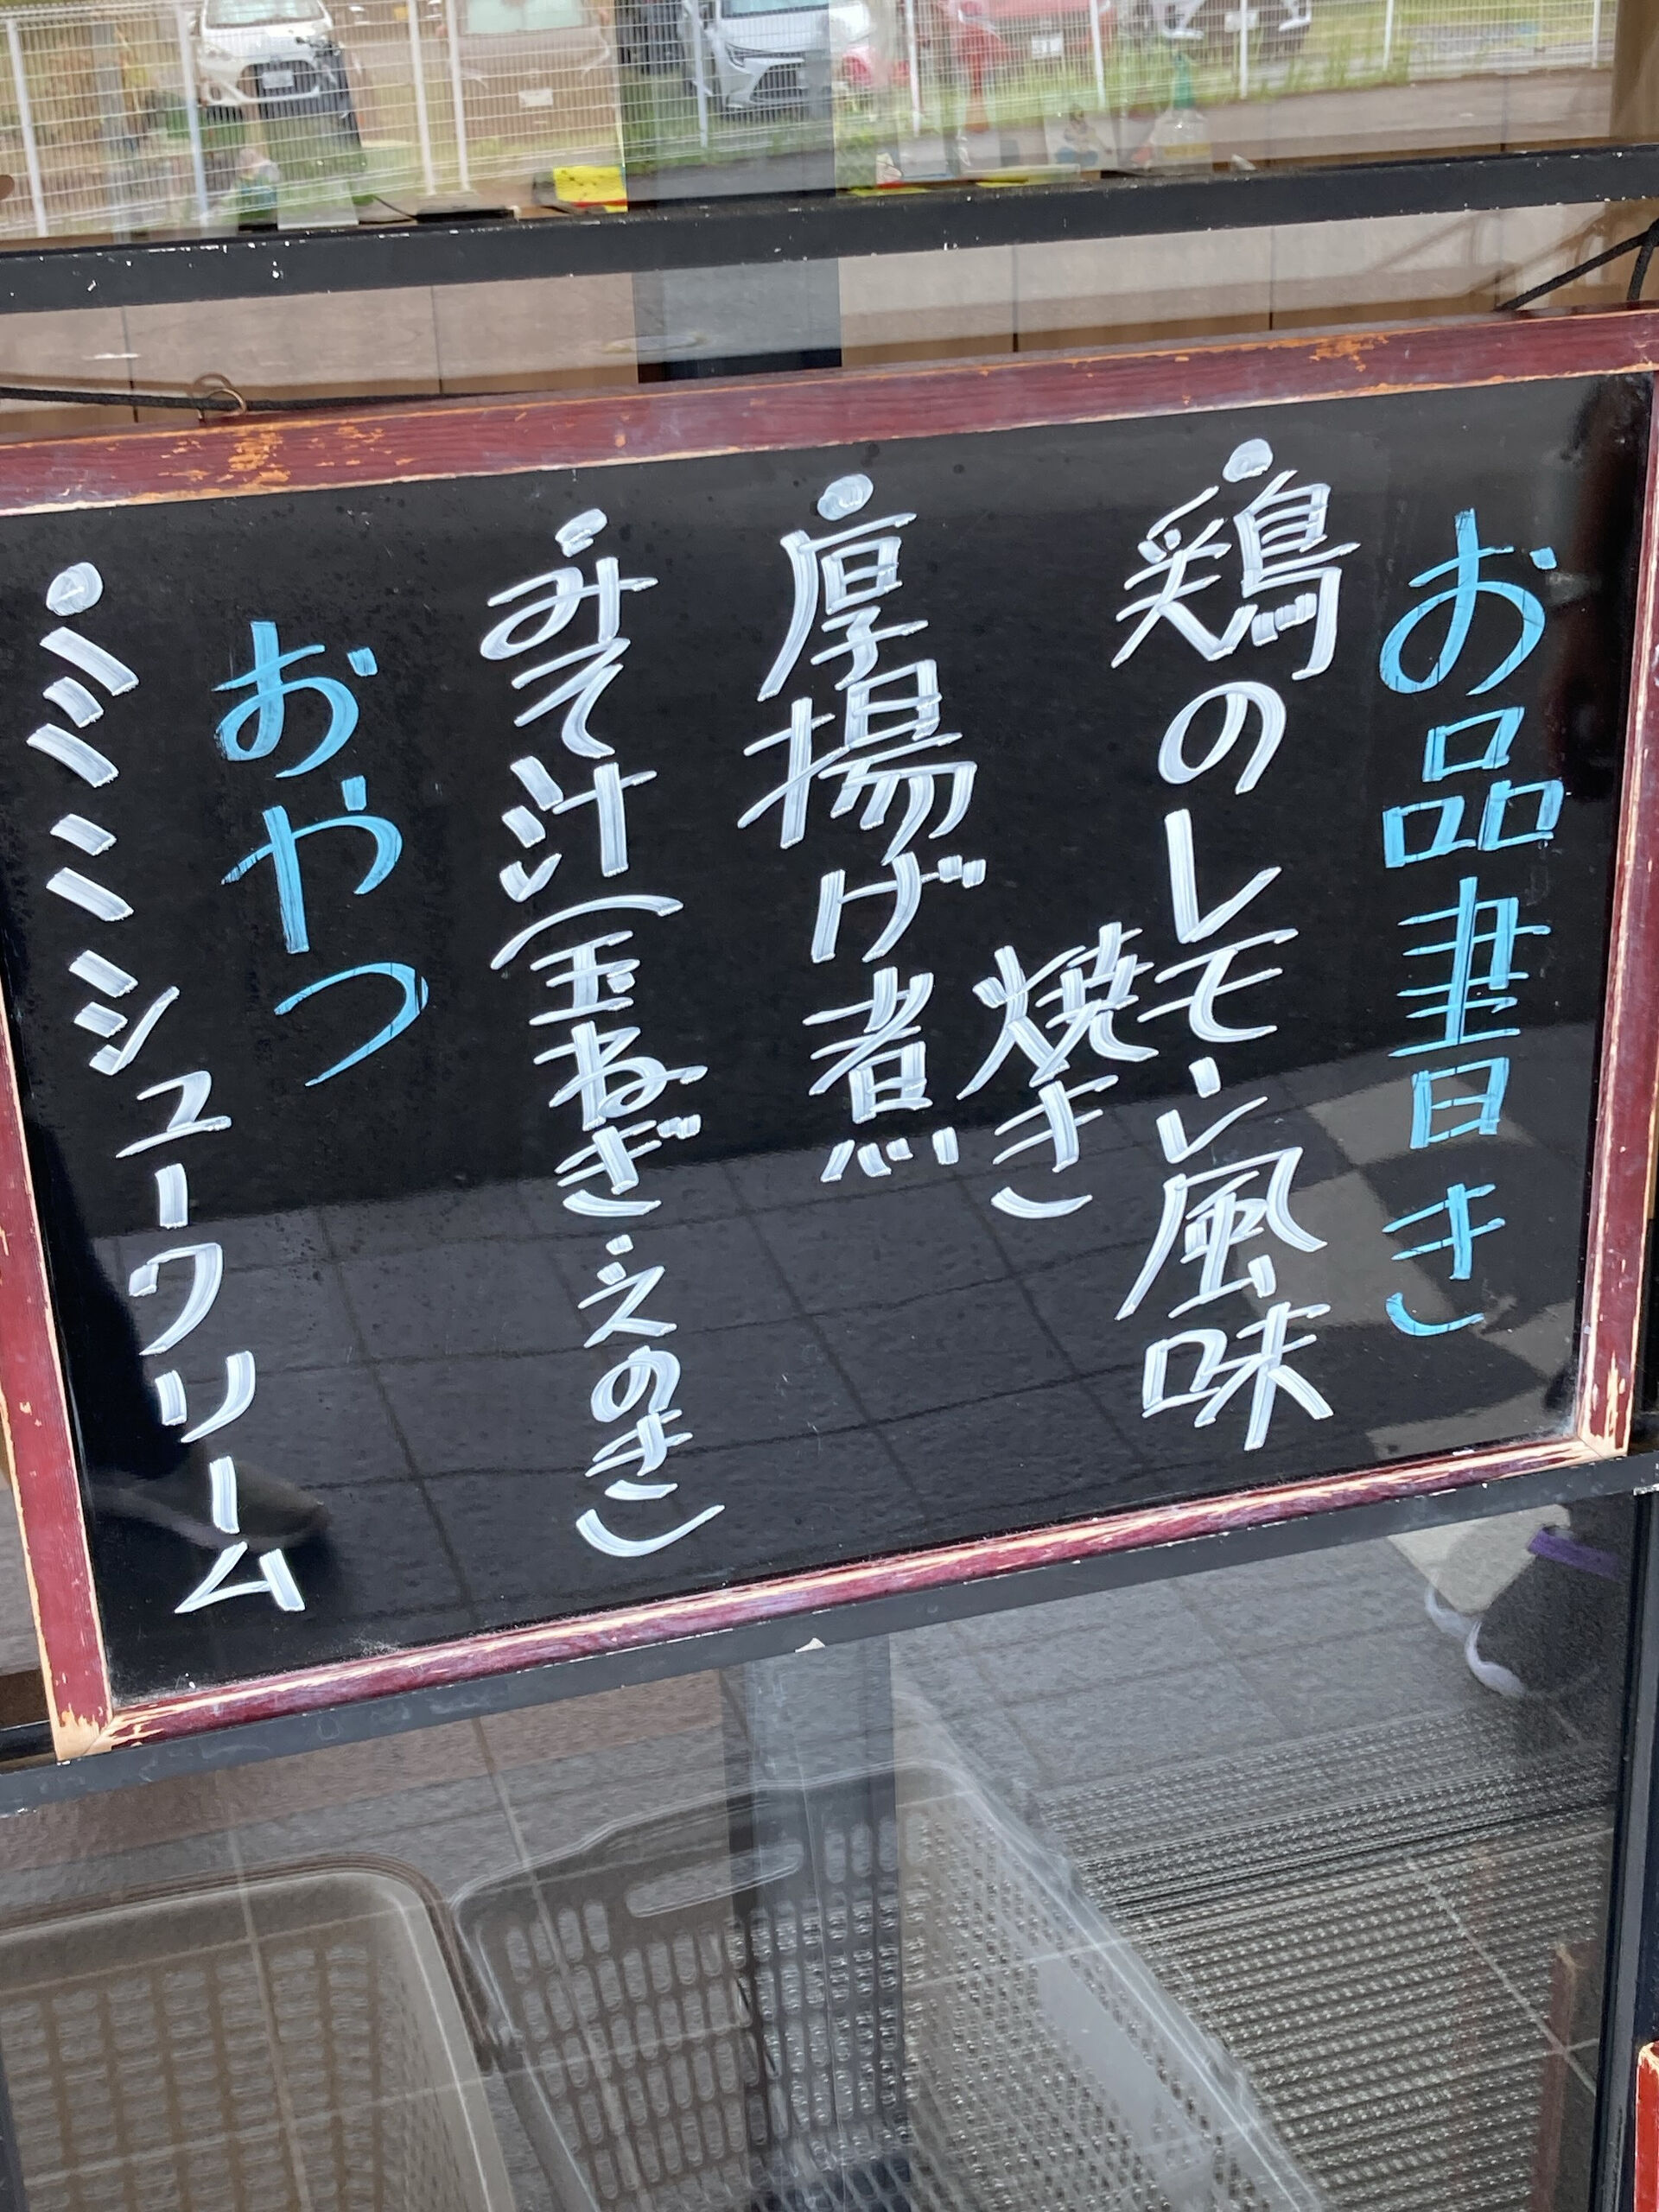 お品書き
・鶏のレモン風味
焼き
・厚揚げ煮
・みそ汁(玉ねぎ・えのき)
おやつ
・ミニシュークリーム